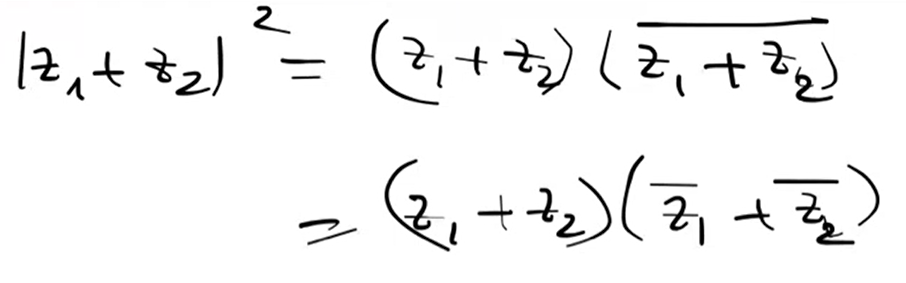 |z₁ + z₂|² = (z₁ + z₂)(z̅₁̅ ̅+̅ ̅z̅₂)
= (z₁ + z₂)(z̅₁ + z̅₂)